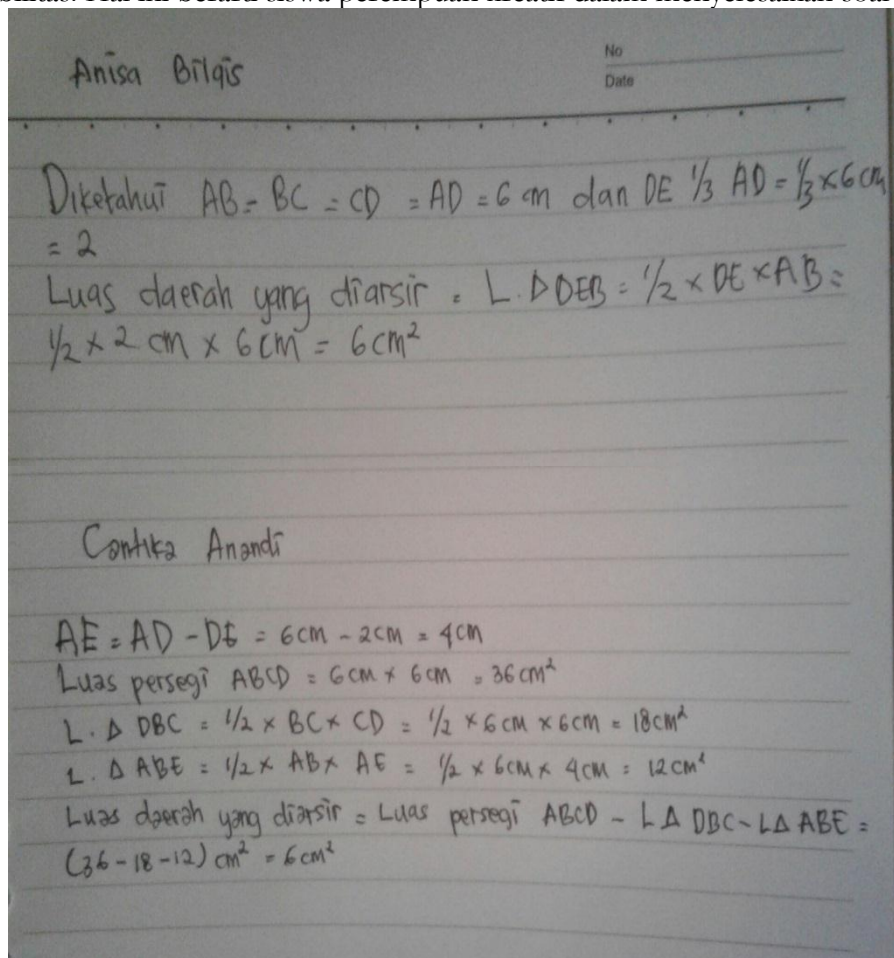 Anisa Bilqis
No
Date
Diketahui AB = BC = CD = AD = 6 cm dan DE 1/3 AD = 1/3 × 6 cm
= 2
Luas daerah yang diarsir = L. Δ DEB = 1/2 × DE × AB =
1/2 × 2 cm × 6 cm = 6 cm²
Cantika Anandi
AE = AD - DE = 6cm - 2cm = 4cm
Luas persegi ABCD = 6cm × 6cm = 36cm²
L. Δ DBC = 1/2 × BC × CD = 1/2 × 6cm × 6cm = 18cm²
L. Δ ABE = 1/2 × AB × AE = 1/2 × 6cm × 4cm = 12cm²
Luas daerah yang diarsir = Luas persegi ABCD - LΔ DBC - LΔ ABE =
(36 - 18 - 12) cm² = 6cm²